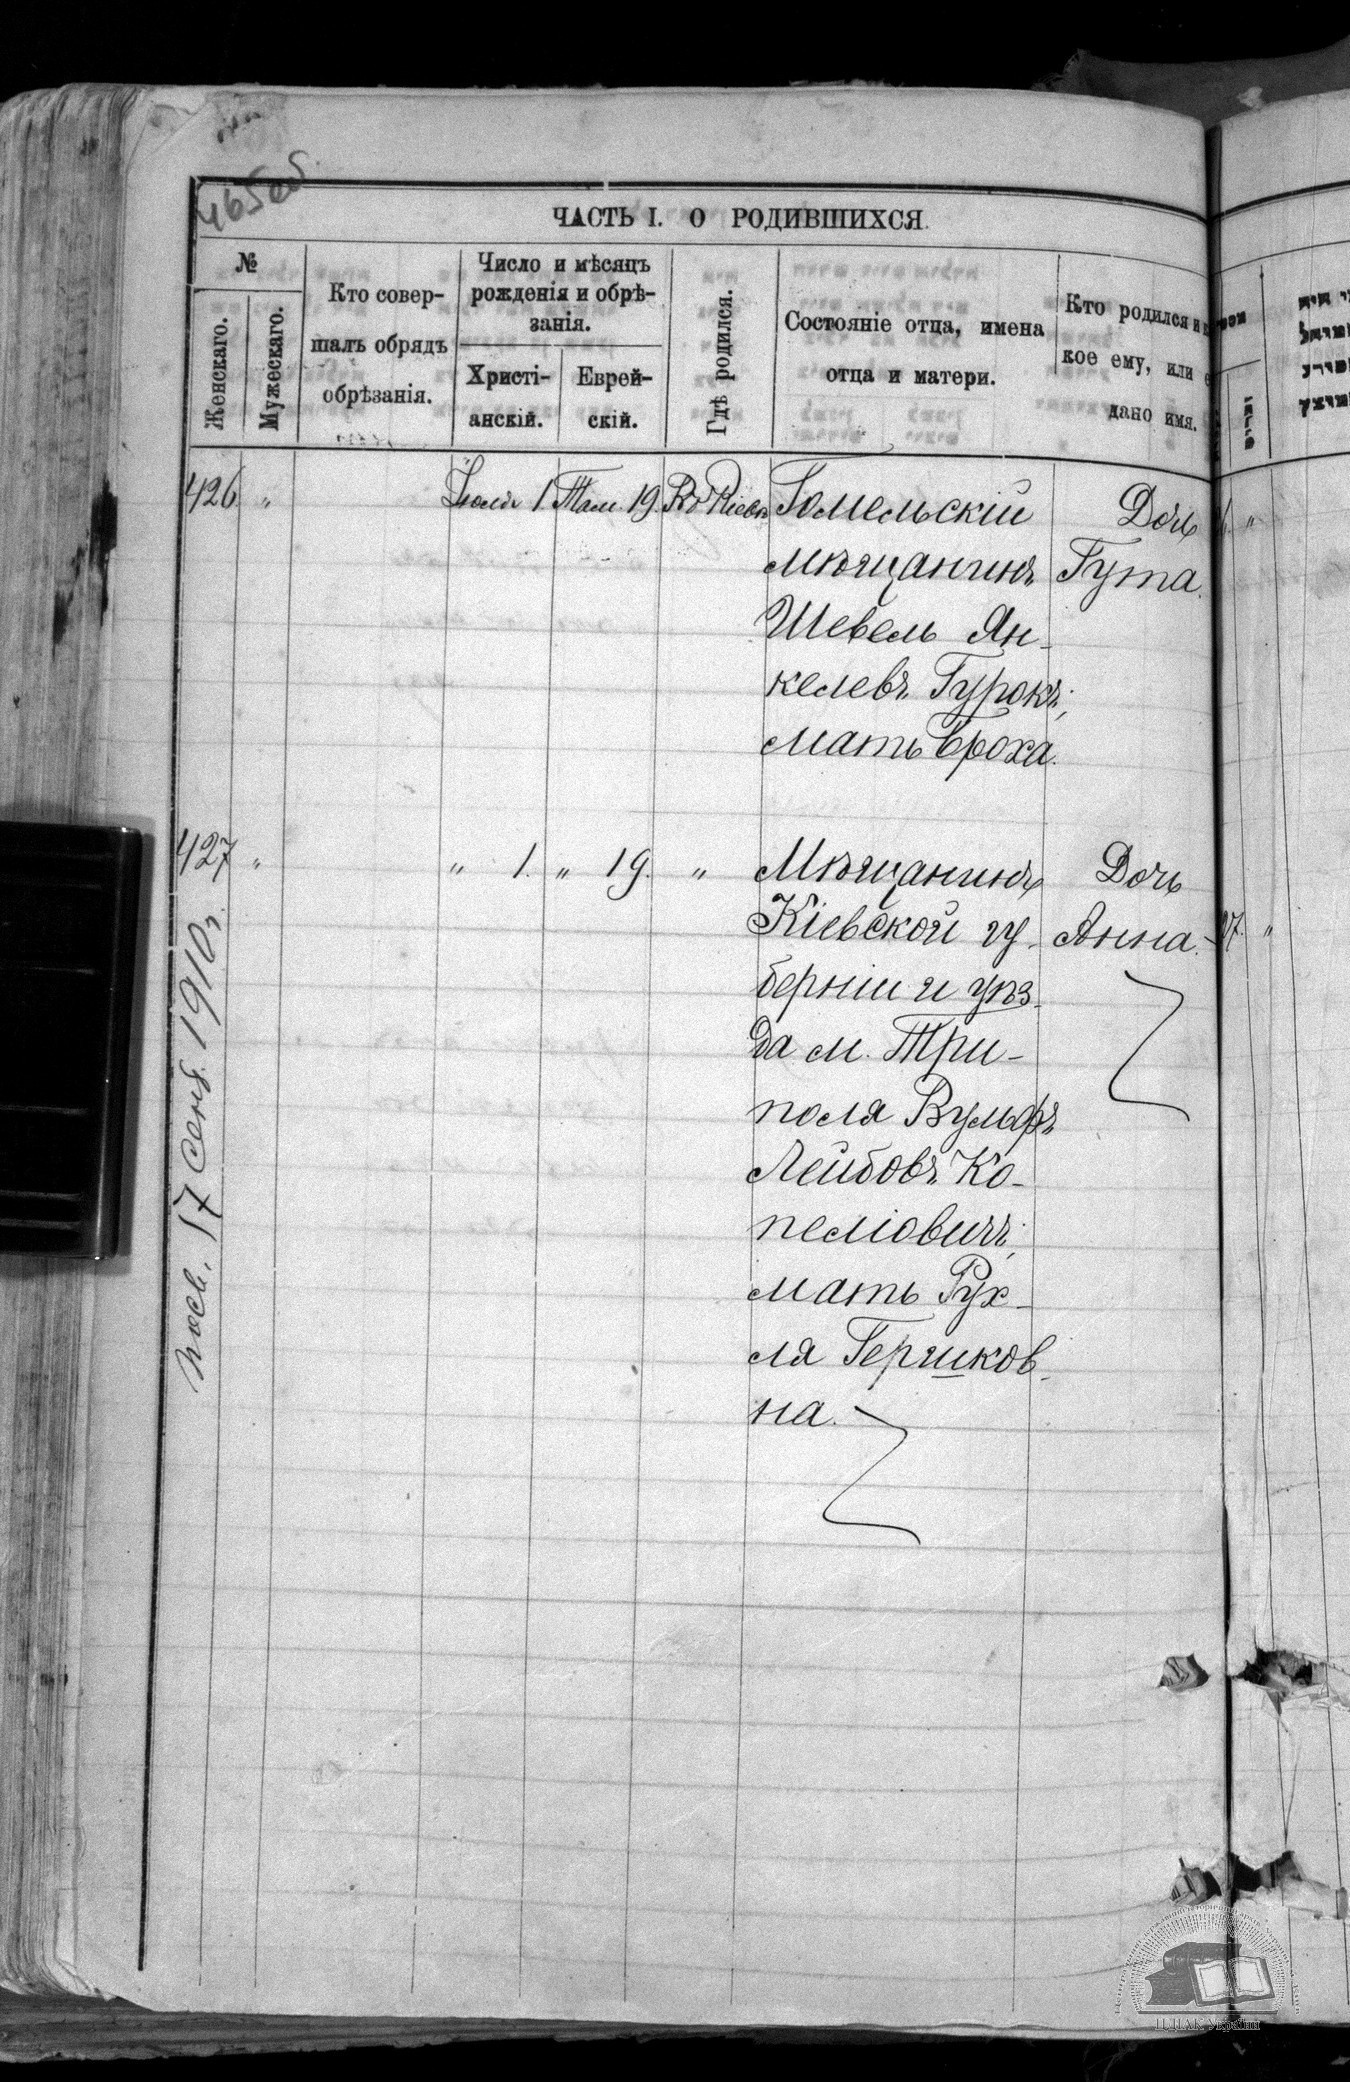 465 об
ЧАСТЬ I. О РОДИВШИХСЯ.
№
Женскаго.
Мужескаго.
Кто совер-
шалъ обрядъ
обрѣзанія.
Число и мѣсяцъ
рожденія и обрѣ-
занія.
Христі-
анскій.
Еврей-
скій.
Гдѣ родился.
Состояніе отца, имена
отца и матери.
Кто родился и
кое ему, или
дано имя.
426 " Іюля 1 Там. 19. Въ Кіевѣ Гомельскій Дочь
мѣщанинъ Гута.
Шевель Ян-
келевъ Гурокъ;
мать Броха.
427 " " 1. " 19. " Мѣщанинъ Дочь
Кіевской гу- Анна.
берніи и уѣз-
да м. Три-
поля Вульфъ
Лейбовъ Ко-
пеліовичъ;
мать Рух-
ля Гершков-
на.
17 сент. 1910 г.
27. "
ЦДІАК України